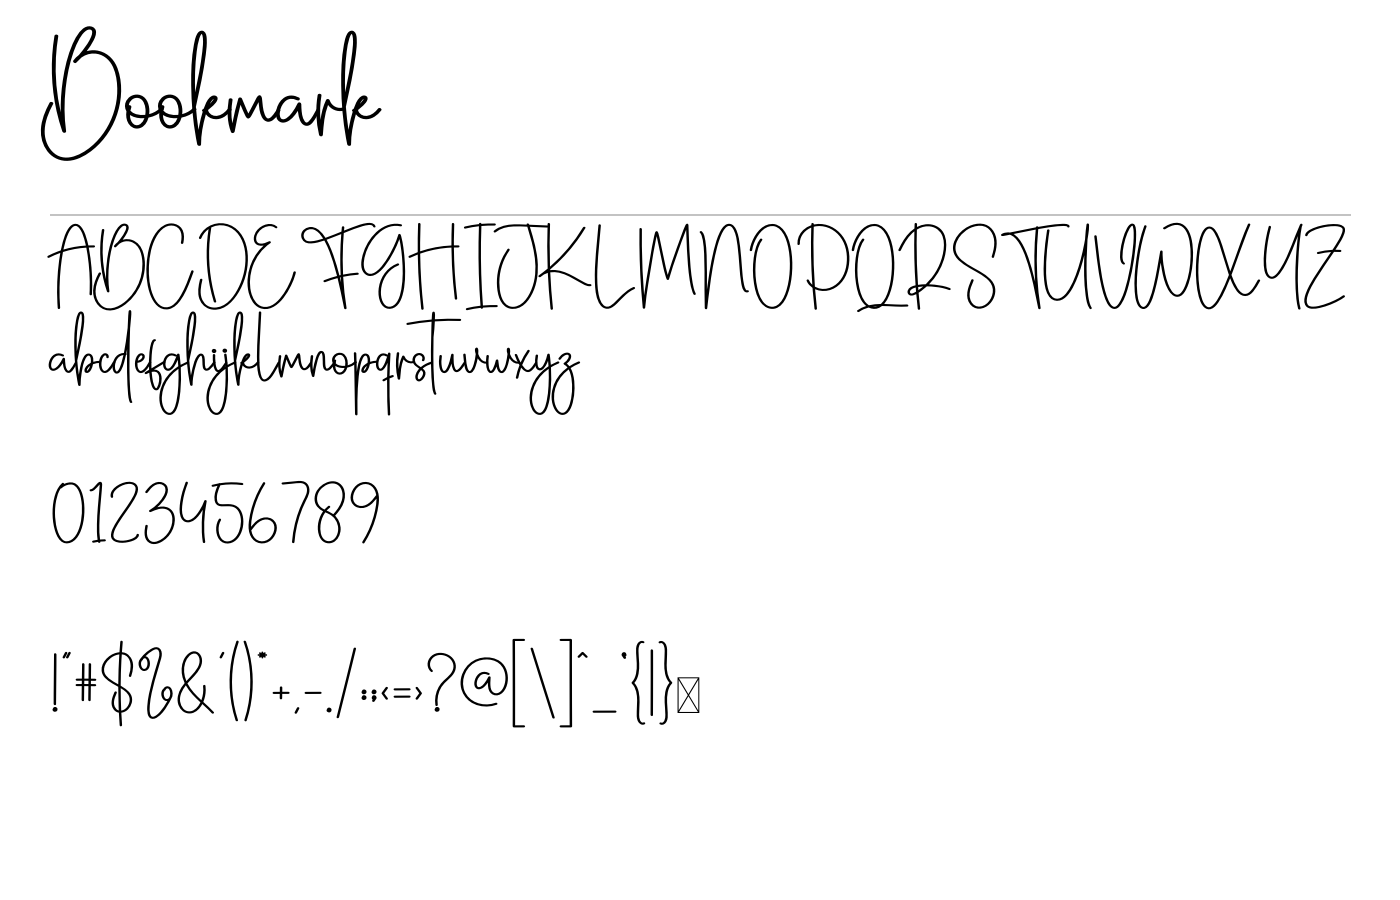 Bookmark
ABCDEFGHIJKLMNOPQRSTUVWXYZ
abcdefghijklmnopqrstuvwxyz
0123456789
!"#$%&'()*+,-./:;<=>?@[\]^_`{|}